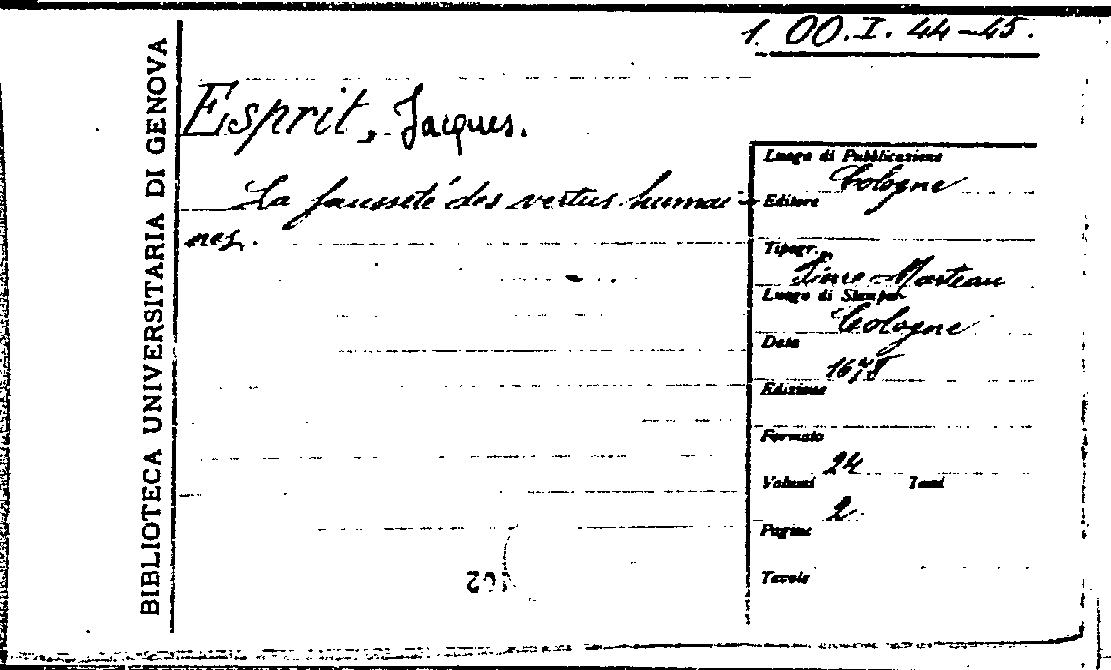 1. OO.I. 44-45.
BIBLIOTECA UNIVERSITARIA DI GENOVA
Esprit, Jacques.
La fausseté des vertus humai-
nes.
Luogo di Pubblicazione
Cologne
Editore
Tipogr.
Pierre Marteau
Luogo di Stampa
Cologne
Data
1678
Edizione
Formato
24
Volumi Tomi
2
Pagine
Tavole